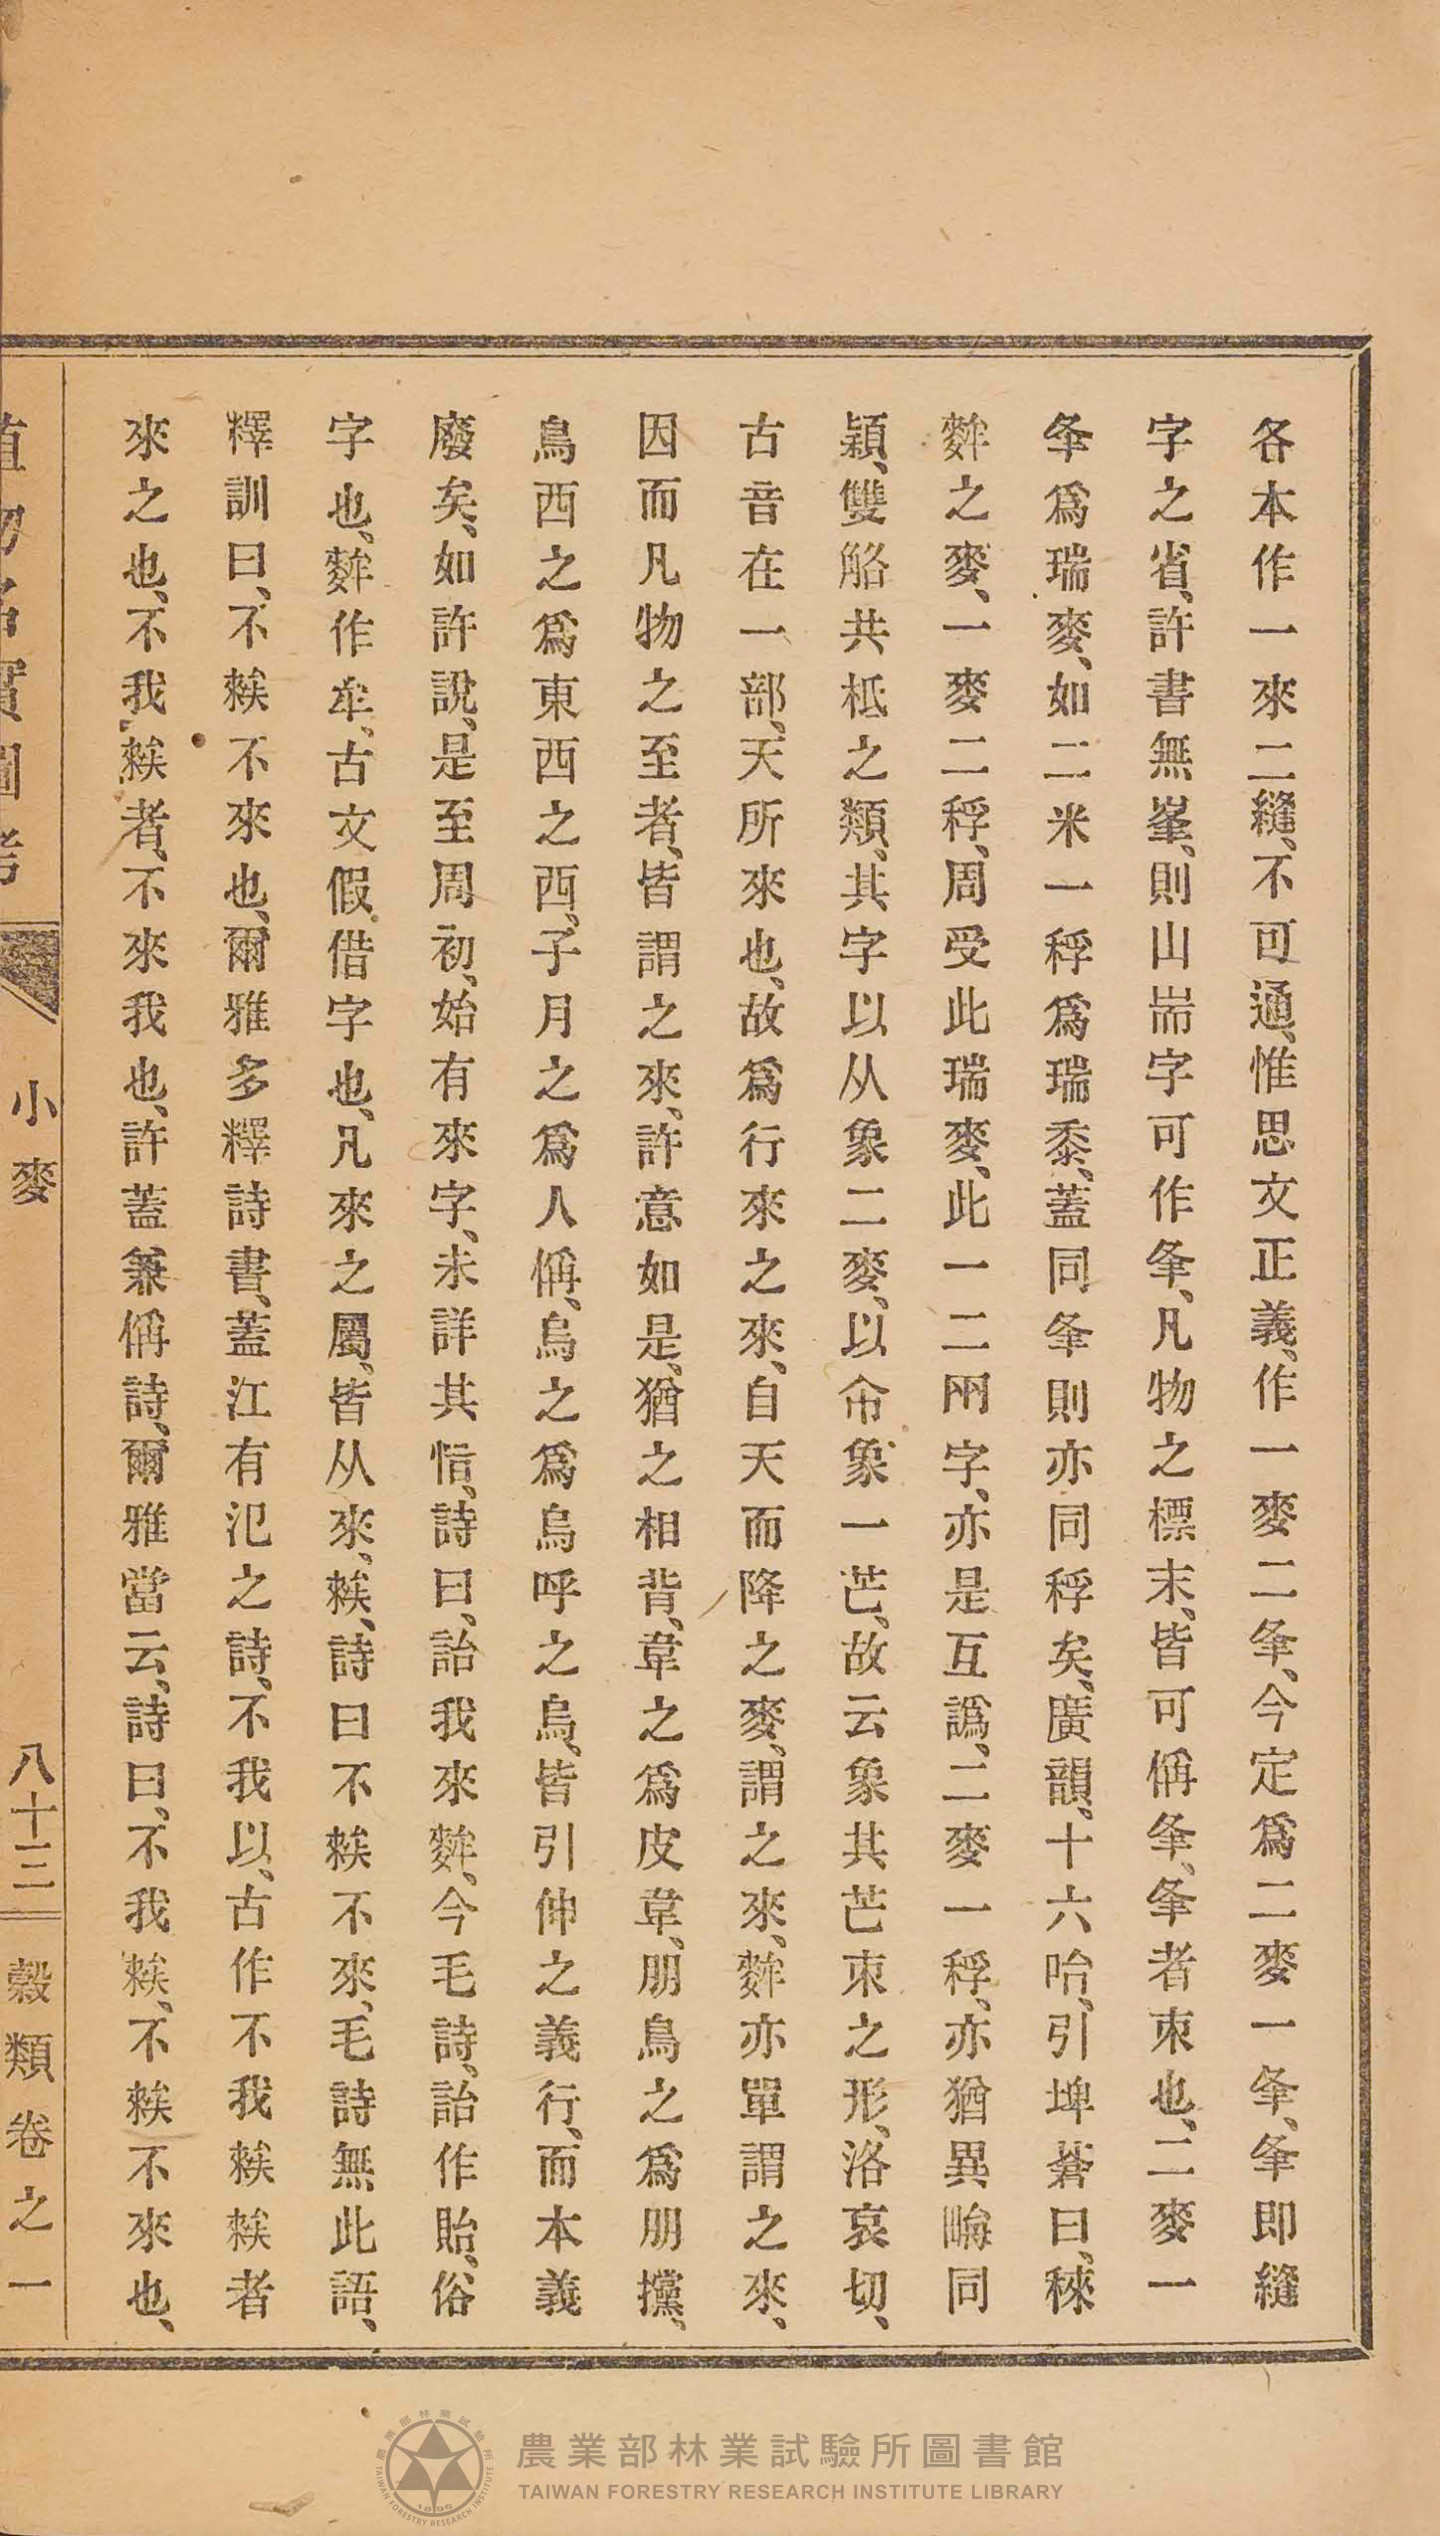 各本作一來二縫、不可通、惟思文正義、作一麥二夆、今定爲二麥一夆、夆即縫
字之省、許書無峯、則山耑字可作夆、凡物之標末、皆可偁夆、夆者朿也、二麥一
夆爲瑞麥、如二米一稃爲瑞黍、蓋同夆則亦同稃矣、廣韻、十六咍、引埤蒼曰、秾
麰之麥、一麥二稃、周受此瑞麥、此一二兩字、亦是互譌、二麥一稃、亦猶異畮同
穎、雙觡共柢之類、其字以从象二麥、以㑒象一芒、故云象其芒朿之形、洛哀切、
古音在一部、天所來也、故爲行來之來、自天而降之麥、謂之來、麰亦單謂之來、
因而凡物之至者、皆謂之來、許意如是、猶之相背、韋之爲皮韋、朋鳥之爲朋攩、
鳥西之爲東西之西、子月之爲人偁、烏之爲烏呼之烏、皆引伸之義行、而本義
廢矣、如許說、是至周初、始有來字、未詳其恉、詩曰、詒我來麰、今毛詩、詒作貽、俗
字也、麰作牟、古文假借字也、凡來之屬、皆从來、䅘、詩曰不䅘不來、毛詩無此語、
釋訓曰、不䅘不來也、爾雅多釋詩書、蓋江有氾之詩、不我以、古作不我䅘䅘者
來之也、不我䅘者、不來我也、許蓋兼偁詩、爾雅當云、詩曰、不我䅘、不䅘不來也、
植物名實圖考 小麥 八十三 穀類卷之一
農業部林業試驗所圖書館
TAIWAN FORESTRY RESEARCH INSTITUTE LIBRARY
農業部林業試驗所
TAIWAN FORESTRY RESEARCH INSTITUTE
1896